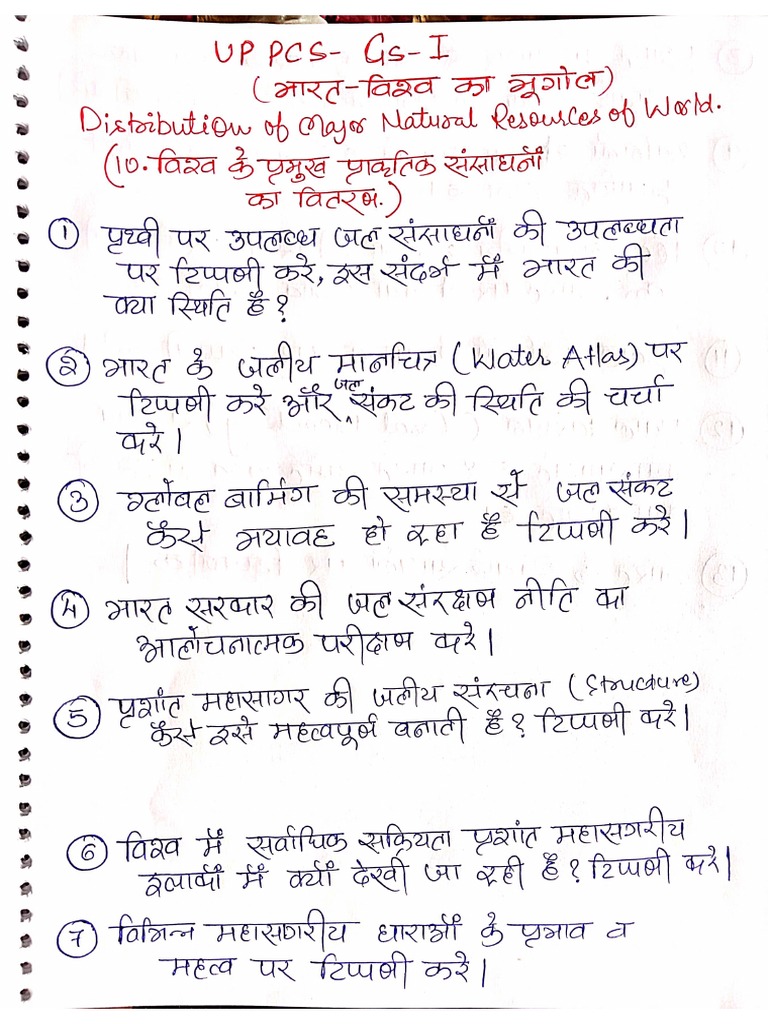 UP PCS- GS-I
(भारत-विश्व का भूगोल)
Distribution of Major Natural Resources of World.
(10. विश्व के प्रमुख प्राकृतिक संसाधनों
का वितरण.)
① पृथ्वी पर उपलब्ध जल संसाधनों की उपलब्धता
पर टिप्पणी करे, इस संदर्भ में भारत की
क्या स्थिति है?
② भारत के जलीय मानचित्र (Water Atlas) पर
टिप्पणी करे और जल संकट की स्थिति की चर्चा
करे।
③ ग्लोबल वार्मिंग की समस्या से जल संकट
कैसे भयावह हो रहा है टिप्पणी करे।
④ भारत सरकार की जल संरक्षण नीति का
आलोचनात्मक परीक्षण करे।
⑤ प्रशांत महासागर की जलीय संरचना (Structure)
कैसे इसे महत्वपूर्ण बनाती है? टिप्पणी करे।
⑥ विश्व में सर्वाधिक सक्रियता प्रशांत महासगरीय
इलाकों में क्यों देखी जा रही है? टिप्पणी करे।
⑦ विभिन्न महासगरीय धाराओं के प्रभाव व
महत्व पर टिप्पणी करे।